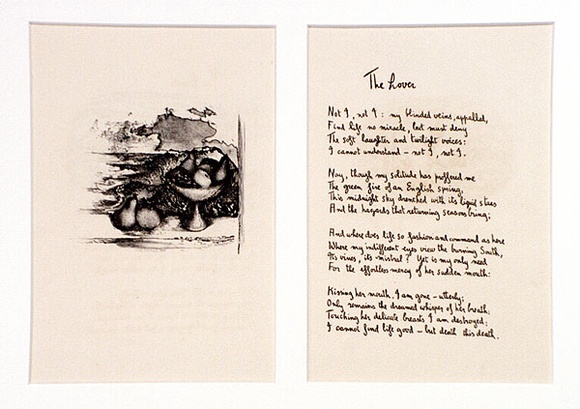 The Lover
Not I, not I: my blinded veins, appalled,
Find life no miracle, but must deny
The soft laughter and twilight voices:
I cannot understand – not I, not I.
Nay, though my solitude has proffered me
The green fire of an English spring,
This midnight sky drenched with its liquid stars
And the leopards that returning seasons bring;
And where does life so fashion and command as here
Where my indifferent eyes view the burning South,
Its vines, its mistral? Yet is my only need
For the effortless mercy of her sudden mouth:
Kissing her mouth, I am gone – utterly;
Only remains the dreamed whisper of her breath;
Touching her delicate breasts I am destroyed;
I cannot find life good – but death this death.